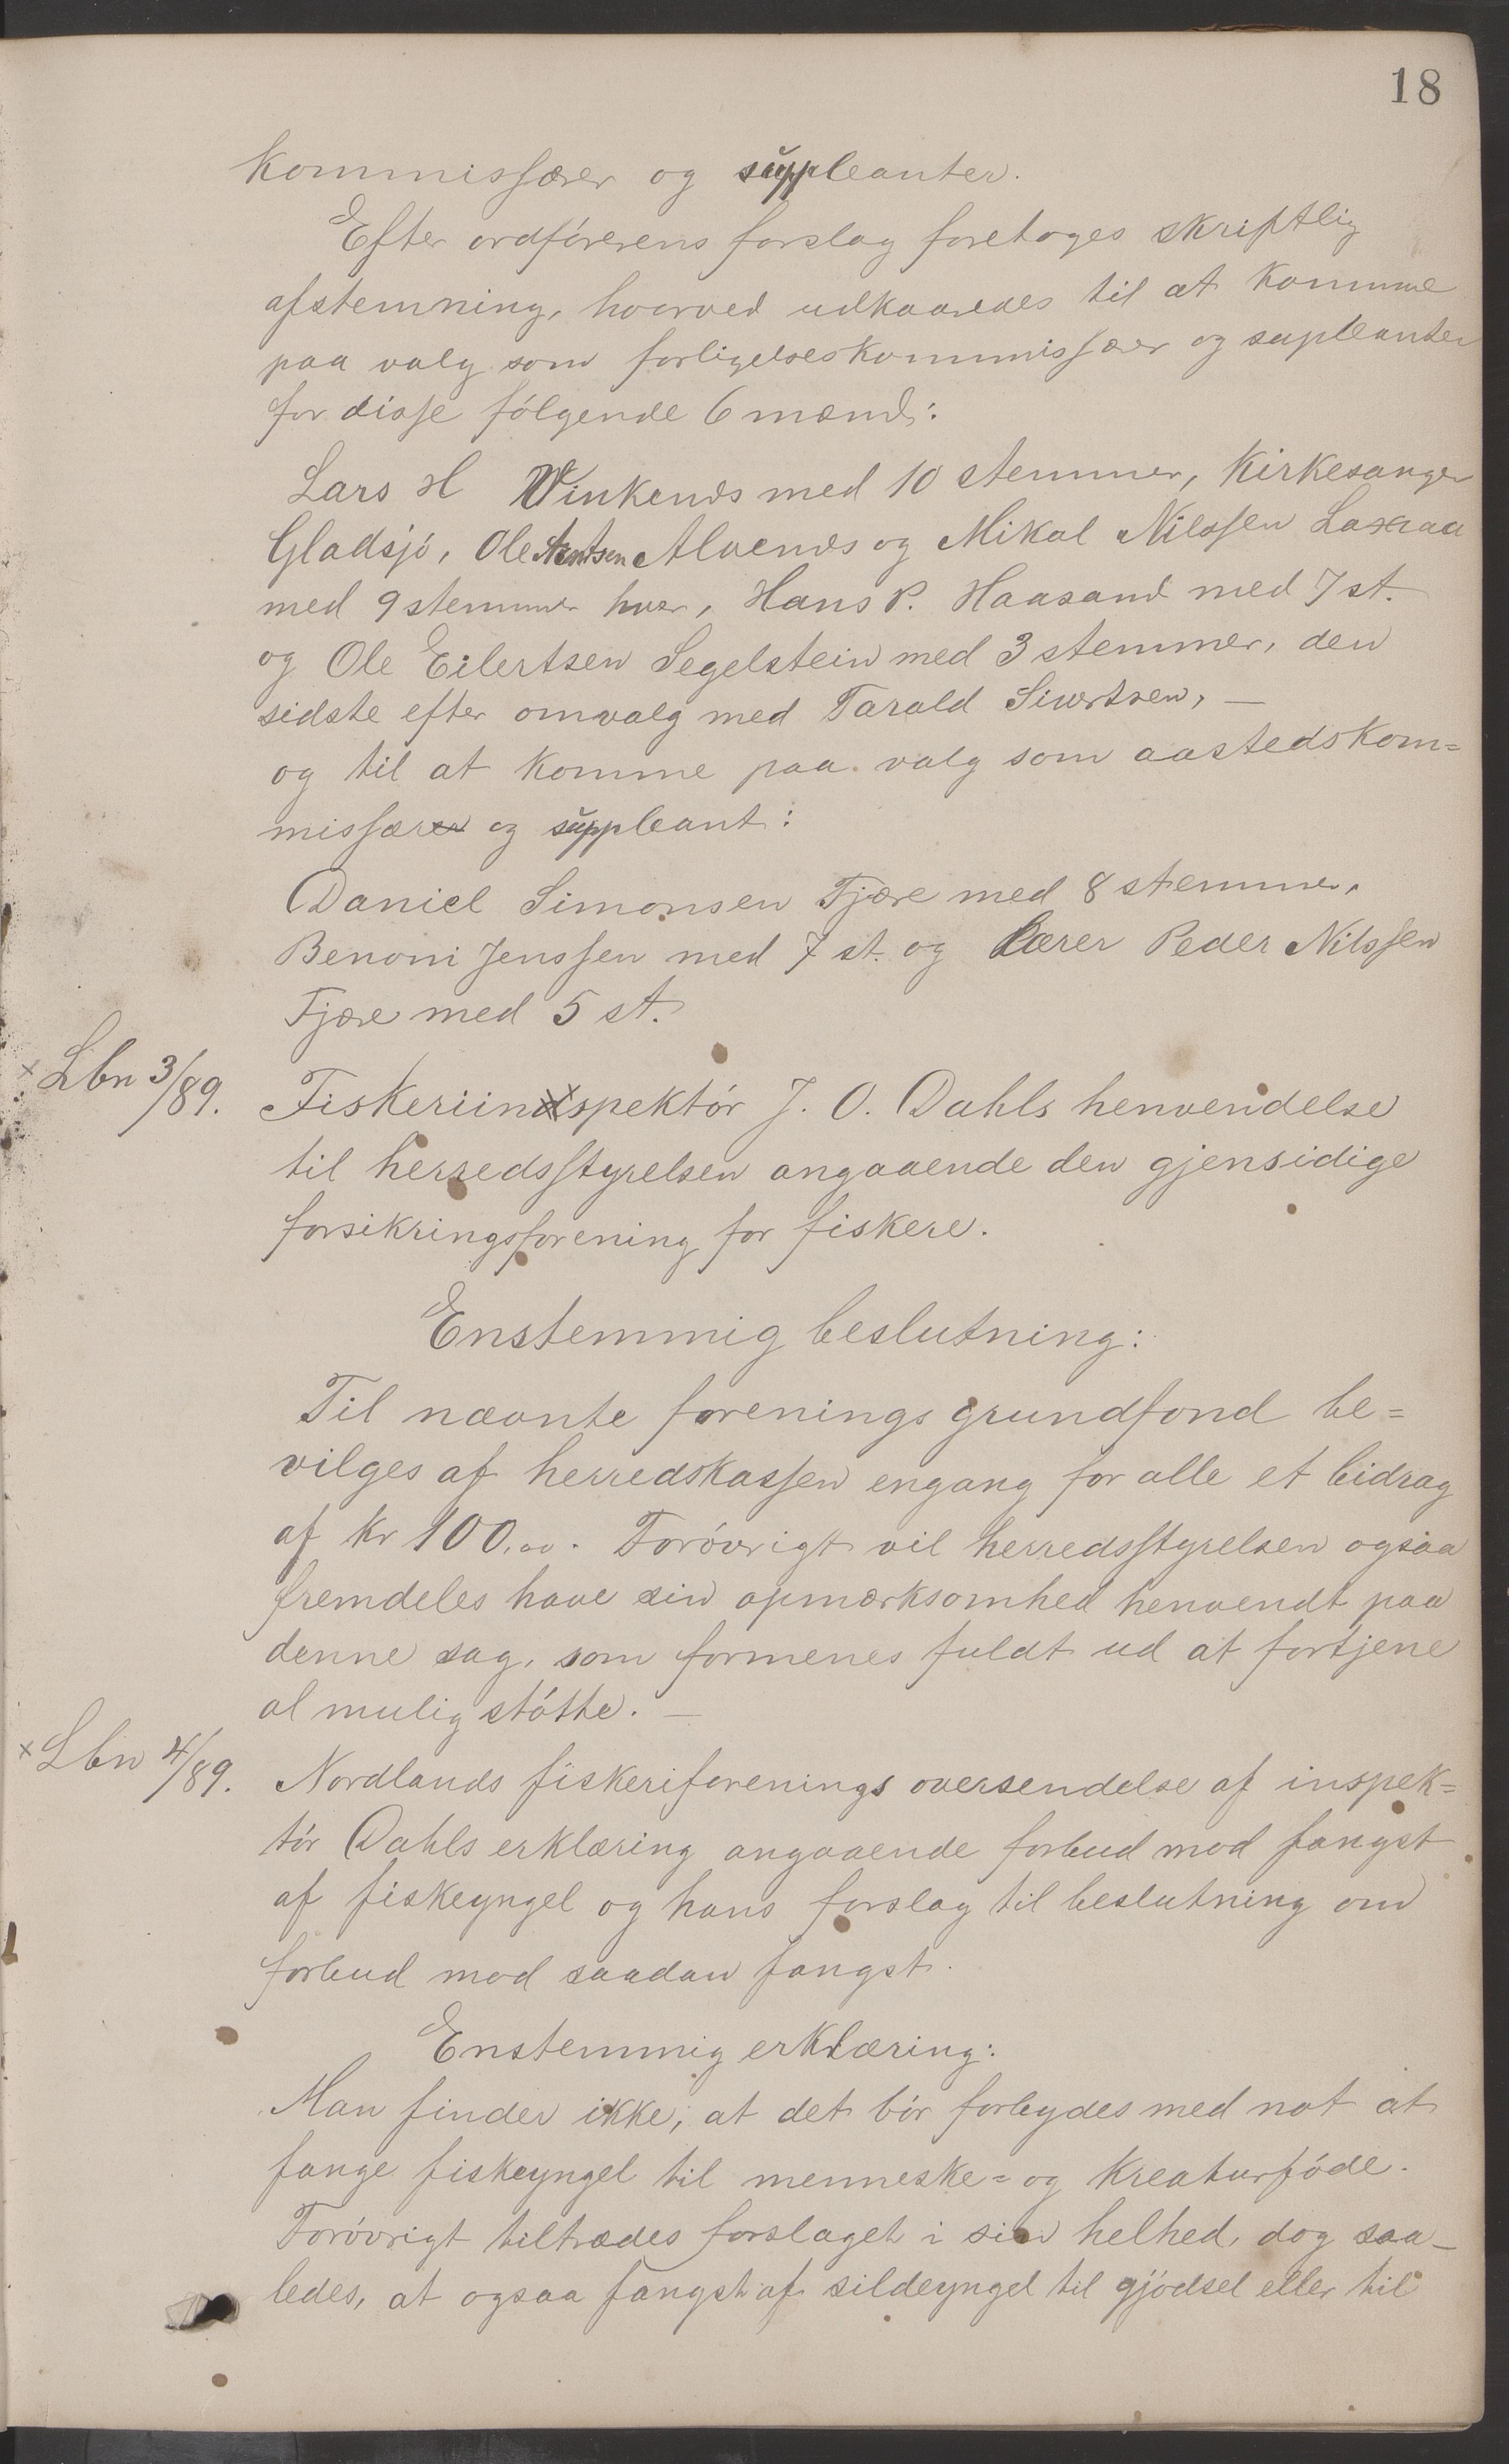 18
kommissærer og suppleanter.
Efter ordførerens forslag foretoges skriftlig
afstemning, hvorved udkaaredes til at komme
paa valg som forligelseskommissær og supleanter
for disse følgende 6 mænd:
Lars H Vinkenes med 10 stemmer, Kirkesanger
Gladsjø, Ole Arntsen Alvenes og Mikal Nilssen Laxaa
med 9 stemmer hver, Hans P. Haasand med 7 st.
og Ole Eilertsen Segelstein med 3 stemmer, den
sidste efter omvalg med Tarald Sivertsen, —
og til at komme paa valg som aastedskom=
missærer og suppleant:
Daniel Simonsen Fjære med 8 stemmer,
Benoni Jenssen med 7 st. og Lærer Peder Nilssen
Fjære med 5 st.
× Lbn 3/89. Fiskeriindspektør J. O. Dahls henvendelse
til herredsstyrelsen angaaende den gjensidige
forsikringsforening for fiskere.
Enstemmig beslutning:
Til nævnte forenings grundfond be=
vilges af herredskassen engang for alle et bidrag
af kr 100,00. Forøvrigt vil herredsstyrelsen ogsaa
fremdeles have sin opmærksomhed henvendt paa
denne sag, som formenes fuldt ud at fortjene
al mulig støtte. —
× Lbn 4/89. Nordlands fiskeriforenings oversendelse af inspek=
tør Dahls erklæring angaaende forbud mod fangst
af fiskeyngel og hans forslag til beslutning om
forbud mod saadan fangst.
Enstemmig erklæring:
Man finder ikke, at det bør forbydes med not at
fange fiskeyngel til menneske= og kreaturføde.
Forøvrigt tiltrædes forslaget i sin helhed, dog saa_
ledes, at ogsaa fangst af sildeyngel til gjødsel eller til